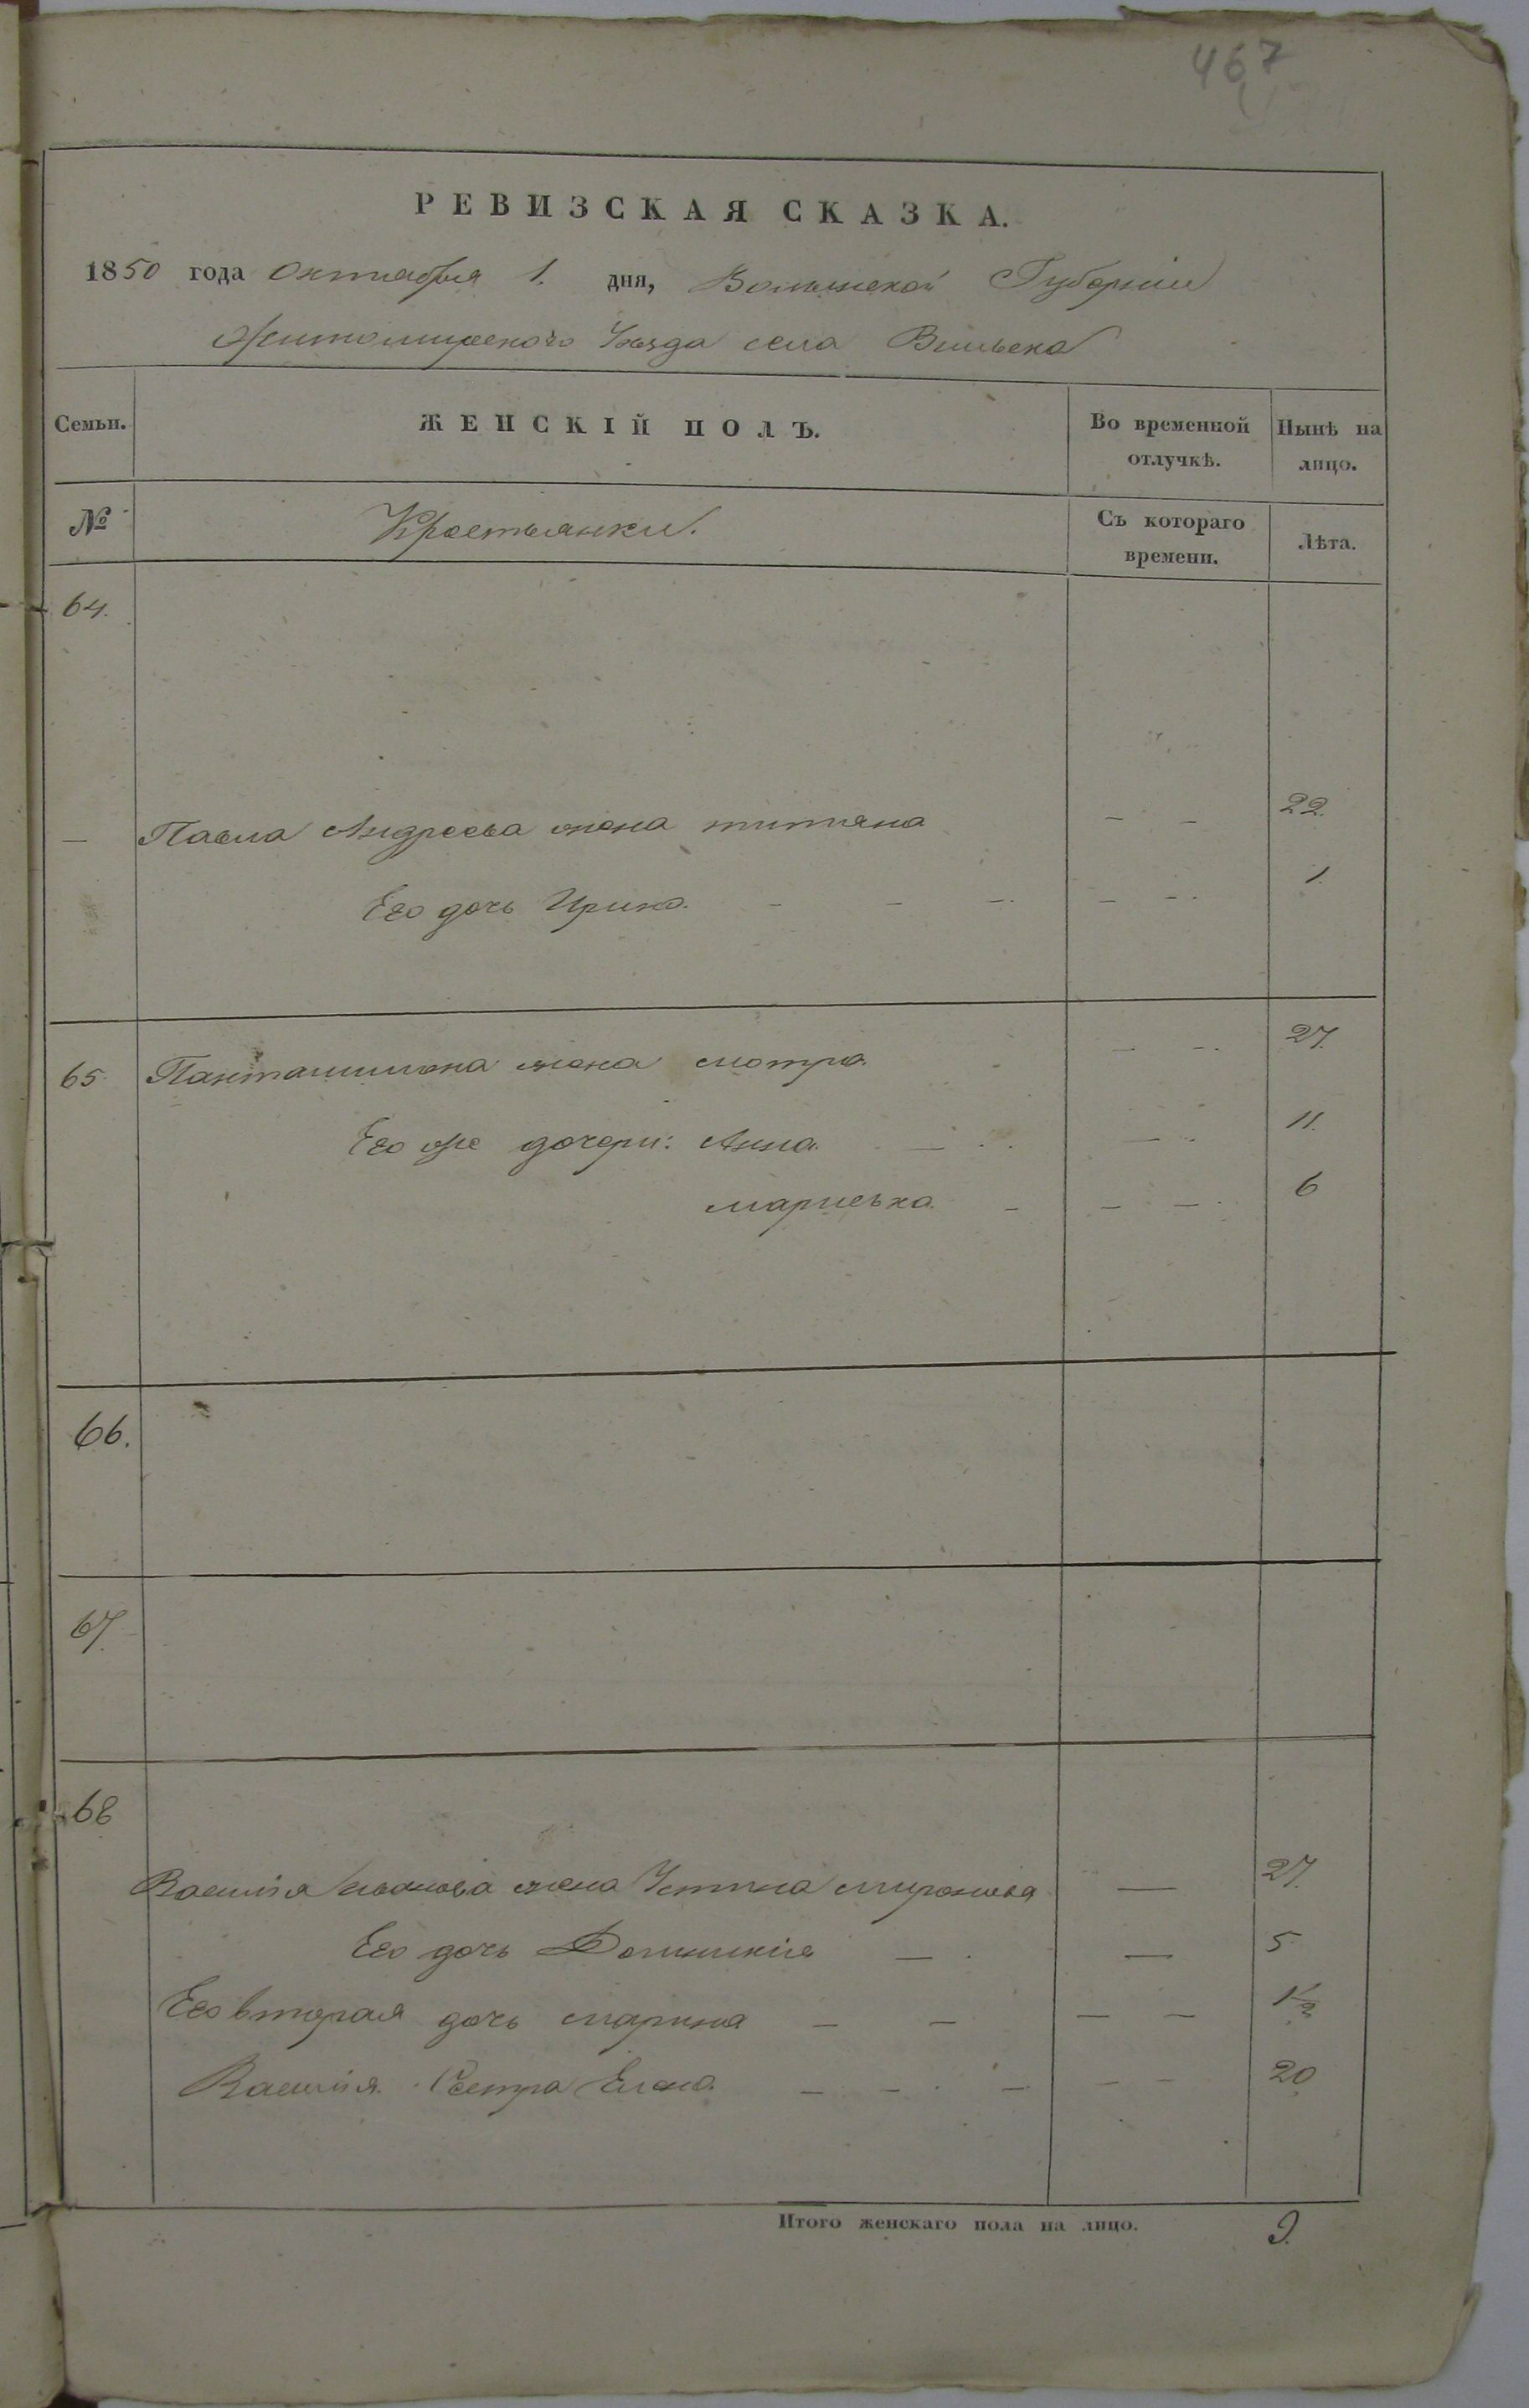 467
РЕВИЗСКАЯ СКАЗКА.
1850 года Октября 1. дня, Волынской Губерніи
Житомирскаго Уѣзда села Вильска
Семьи. ЖЕНСКІЙ ПОЛЪ. Во временной отлучкѣ. Нынѣ на лицо.
№ Крестьянки. Съ котораго времени. Лѣта.
64.
— Павла Андреева жена титяна — — 22.
Его дочь Ирина. — — — — — 1.
65. Пантылимона жена мотра — — 27.
Его же дочери: Анна. — — 11.
мариська. — — — 6
66.
67.
68
Василія Иванова жена Устина миронова — 27.
Его дочь Домникія — — 5.
Его вторая дочь марина — — — — 1/2
Василія Сестра Елена. — — — — — 20
Итого женскаго пола на лицо. 9.